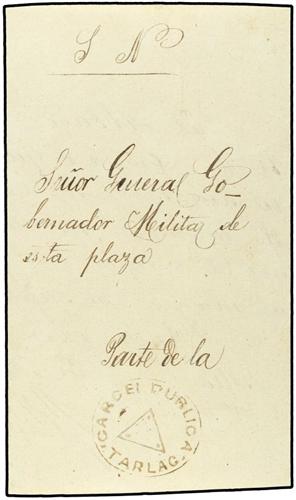 S N
Señor General Go-
bernador Militar de
esta plaza
Parte de la
CARCEL PUBLICA
TARLAC